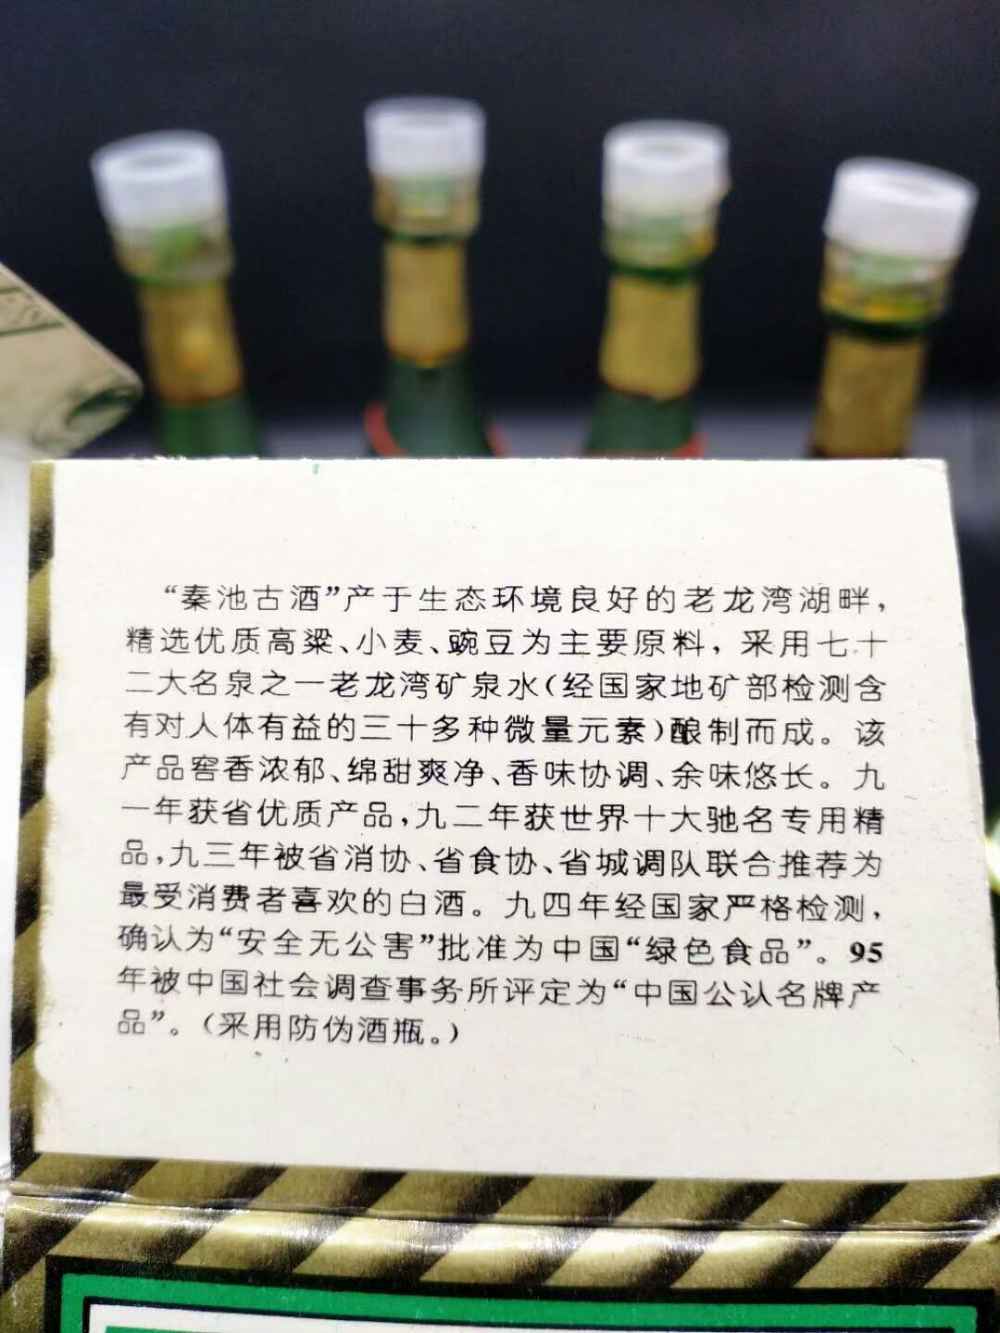 “秦池古酒”产于生态环境良好的老龙湾湖畔，
精选优质高粱、小麦、豌豆为主要原料，采用七十
二大名泉之一老龙湾矿泉水（经国家地矿部检测含
有对人体有益的三十多种微量元素）酿制而成。该
产品窖香浓郁、绵甜爽净、香味协调、余味悠长。九
一年获省优质产品，九二年获世界十大驰名专用精
品，九三年被省消协、省食协、省城调队联合推荐为
最受消费者喜欢的白酒。九四年经国家严格检测，
确认为“安全无公害”批准为中国“绿色食品”。95
年被中国社会调查事务所评定为“中国公认名牌产
品”。（采用防伪酒瓶。）